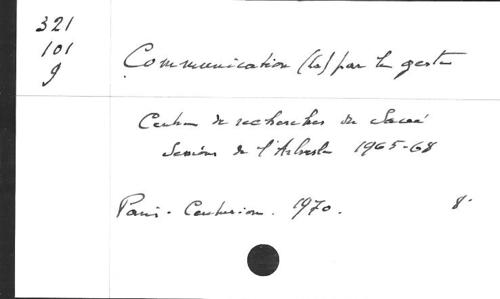 321
101
9
Communication (la) par le geste
Centre de recherches du Sacré
Sessions de l'Arbresle 1965-68
Paris - Centurion. 1970. 8°